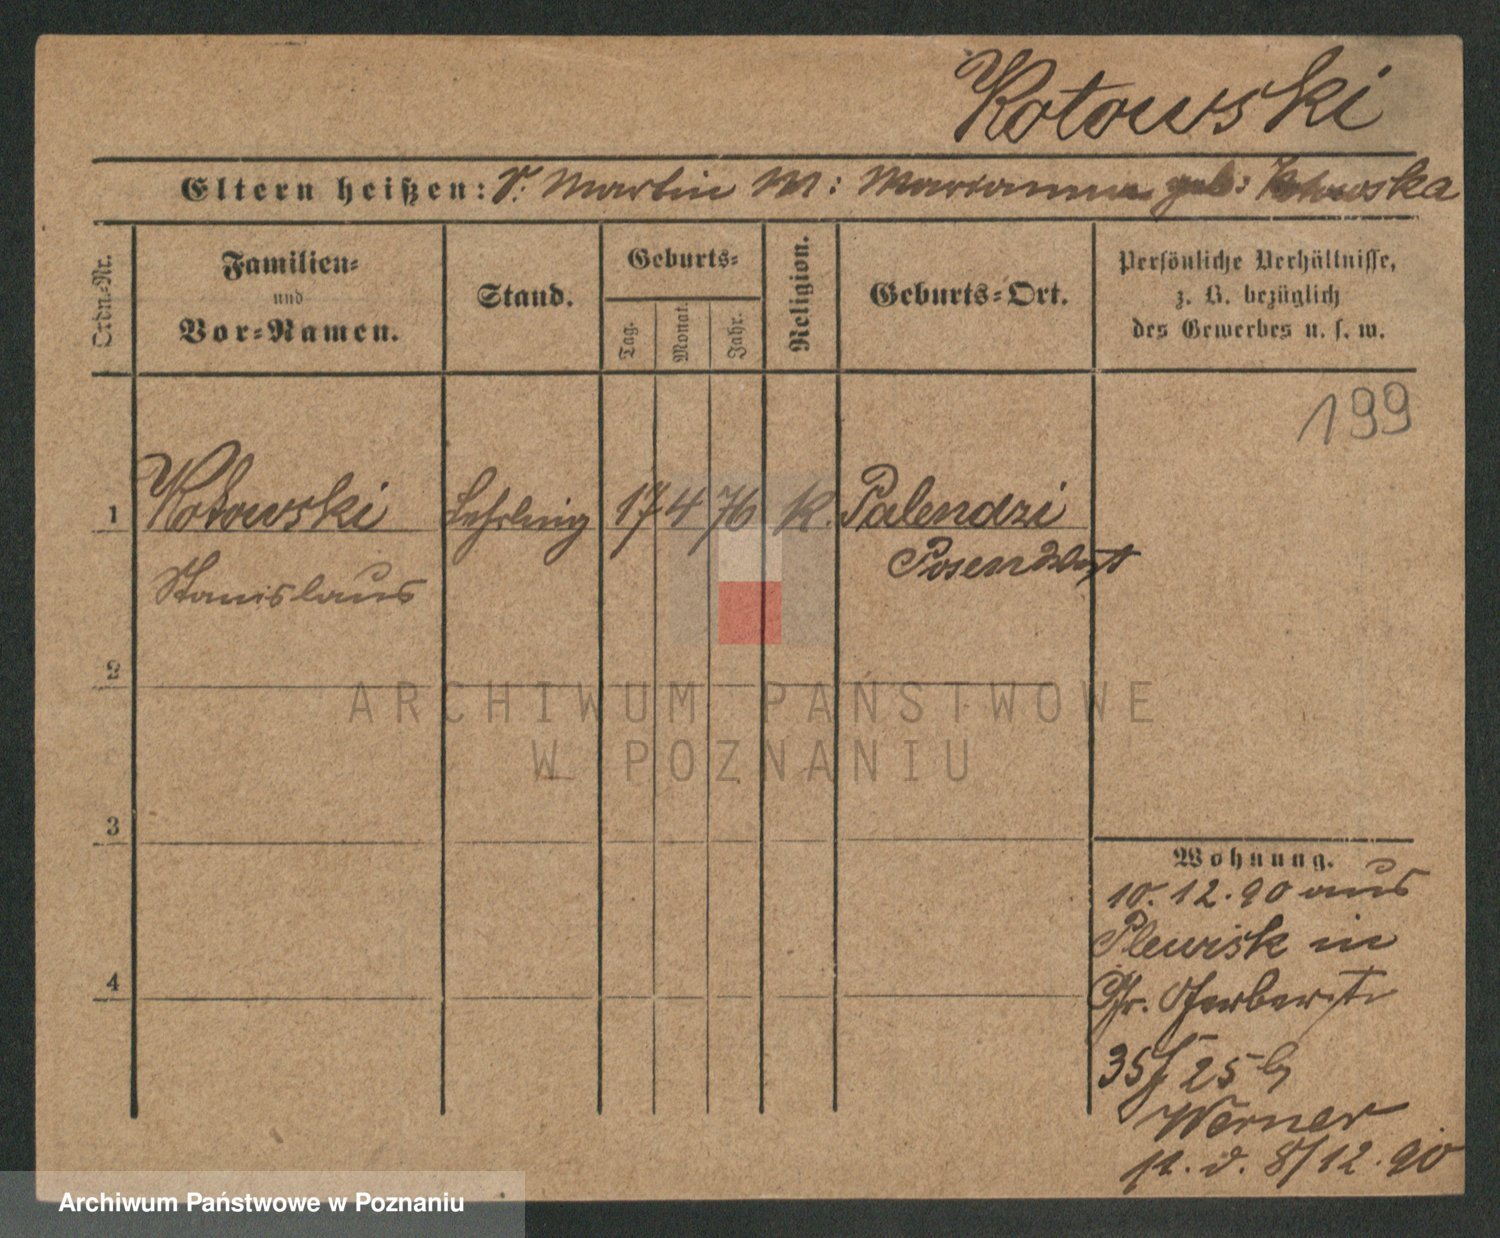 Kotowski
Eltern heißen: V. Martin M: Marianna geb: Kotowska
Ordn.-Nr.
Familien-
und
Vor-Namen.
Stand.
Geburts-
Tag.
Monat.
Jahr.
Religion.
Geburts-Ort.
Persönliche Verhältnisse,
z. B. bezüglich
des Gewerbes u. s. w.
199
1 Kotowski Lehrling 17 4 76 K. Palendzi
Stanislaus Posen West
2
3
4
Wohnung.
10.12.90 aus
Plewisk in
Gr. Gerberst
35 25
Werner
8/12.90
ARCHIWUM PAŃSTWOWE
W POZNANIU
Archiwum Państwowe w Poznaniu